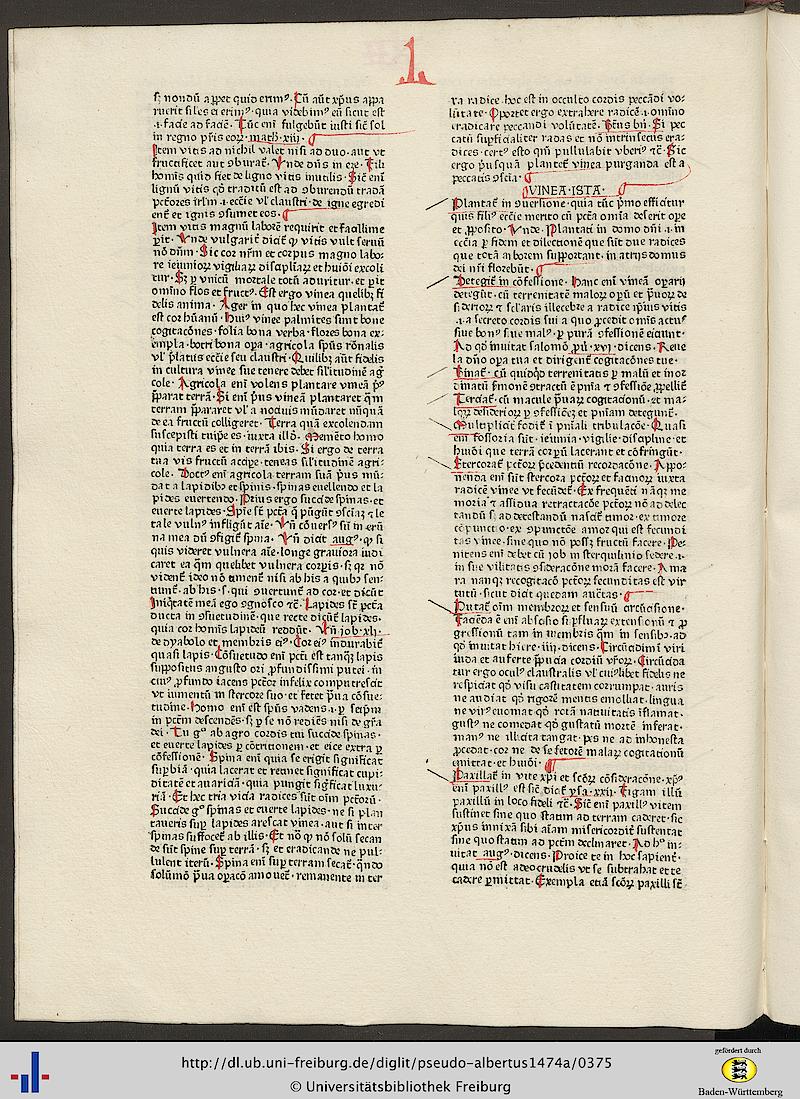 l
sʒ nondū appet quid erimꝰ. Cū aūt xp̄us appa
ruerit siles ei erimꝰ. quia videbimꝰ eū sicut est
.i. facie ad faciē. Tūc em̄ fulgebūt iusti sic̄ sol
in regno pr̄is eoꝝ. math. xiii.
Item vitis ad nichil valet nisi ad duo. aut vt
fructificet aut ꝯburat̄. Vnde dn̄s in eze. Fili
homīs quid fiet de ligno vitis inutilis. Sic̄ em̄
lignū vitis qd̄ traditū est ad ꝯburendū tradā
pctōres irl̄m .i. eccīe vl̄ claustri. de igne egredi
ent̄ et ignis ꝯsumet eos.
Item vitis magnū laborē requirit et facillime
ꝑit. Vnde vulgarit̄ dicit̄ ꝙ vitis vult seruū
nō dn̄m. Sic cor nr̄m et corpus magno labo-
re ieiunioꝝ vigiliaꝝ disciplīaꝝ et huiōi excoli
tur. Sʒ ꝑ vnicū mortale totū aduritur. et ꝑit
omīno flos et fructꝰ. Est ergo vinea quelibꝫ fi
delis anima. Ager in quo hec vinea plantat̄
est cor hūanū. Huiꝰ vinee palmites sunt bone
cogitacōnes. folia bona verba. flores bona ex-
empla. botri bona opa. agricola sp̄us rōnalis
vl̄ p̄latus eccīe seu claustri. Quilibꝫ aūt fidelis
in cultura vinee sue tenere debet silitudinē ag̃
cole. Agricola em̄ volens plantare vineā p̄ꝰ
p̄parat terrā. Si em̄ pꝰ vineā plantaret q̄m
terram p̄pararet vl̄ a nociuis mūdaret nūquā
de ea fructū colligeret. Terra quā excolendam
suscepisti tuip̄e es. iuxta illd̄. Memēto homo
quia terra es et in terrā ibis. Si ergo de terra
tua vis fructū accipe. teneas silitudinē agri-
cole. Boni em̄ agricola terram suā p̄us mū-
dat a lapidibꝰ et spinis. spinas euellendo et la
pides euertendo. Prius ergo succide spinas. et
euerte lapides. Spīe st̄ pctā q̄ pūgūt ꝯsciaꝫ ⁊ le
tale vulnꝰ infligūt aīe. Vn̄ cōuersꝰ sū in erū
na mea dū ꝯfigit̄ spina. Vn̄ dicit augꝰ. ꝙ si
quis videret vulnera aīe. longe grauiora iudi
caret ea q̄m quelbet vulnera corꝑis. sʒ qꝛ nō
vident̄ ideo nō timent̄ nisi ab his a quibꝰ sen-
tiunt̄. ab his .s. qui ꝯuertunt̄ ad cor. et dicūt
Iniq̄tatē meā ego ꝯgnosco ⁊c̄. Lapides st̄ pctā
ducta in ꝯsuetudinē. que recte dicūt̄ lapides.
quia cor homīs lapideū reddūt. Vn̄ iob. xli.
de dyabolo et membris eiꝰ. Cor eiꝰ indurabit̄
quasi lapis. Cōsuetudo em̄ pcti est tanq̄ꝫ lapis
suppositus angusto ori ꝓfundissimi putei. in
cuiꝰ ꝓfundo iacens pctor infelix computrescit
vt iumentū in stercore suo. et fetet p̄ua cōsue-
tudine. Homo em̄ est sp̄us vadens .i. ꝑ seipm̄
in pctm̄ descendēs. sʒ ꝑ se nō rediēs nisi de gr̄a
dei. Tu gͦ ab agro cordis tui succide spinas.
et euerte lapides ꝑ cōtritionem. et eice extra ꝑ
cōfessionē. Spina em̄ quia se erigit significat
suꝑbiā. quia lacerat et retinet significat cupi-
ditatē et auariciā. quia pungit significat luxu-
riā. Et hec tria vicia radices sūt oīm pctōrū.
Succide gͦ spinas et euerte lapides. ne si plan
taueris suꝑ lapides arescat vinea. aut si inter
spinas suffocet̄ ab illis. Et nō ꝙ nō solū secan
de sūt spine suꝑ terrā. sʒ et eradicande ne pul-
lulent iterū. Spina em̄ suꝑ terram secat̄. qn̄do
solūmō p̄ua oꝑacō amouet̄. remanente in ter
ra radice. hoc est in occulto cordis peccādi vo-
lūtate. Oportet ergo extrahere radicē .i. omīno
eradicare peccandi volūtatē. Vn̄s bn̄. Si pec
catū suꝑficialiter radas et nō intrinsecus era-
dices. certꝰ esto qm̄ pullulabit vberiꝰ ⁊c̄. Sic
ergo p̄usquā plantet̄ vinea purganda est a
peccatis ꝯscīa.
VINEA. ISTA.
Plantat̄ in ꝯuersione. quia tūc p̄mo efficitur
quis filiꝰ eccīe merito cū pctā omīa deserit oꝑe
et ꝓposito. Vnde. Plantati in domo dn̄i .i. in
eccīa ꝑ fidem et dilectionē que sūt due radices
que totā arborem supportant. in atrijs domus
dei nr̄i florebūt.
Detegit̄ in cōfessione. Hanc em̄ vineā oꝑarij
detegūt. cū terrenitatē maloꝝ oꝑū et p̄uoꝝ de
sideriorꝝ ⁊ sclāris illecebre a radice ipsius vitis
.i. a secreto cordis sui a quo ꝓcedit omīs actꝰ
siue bonꝰ siue malꝰ. ꝑ purā ꝯfessionē eiciunt.
Ad qd̄ inuitat salomō. ꝓu. xvi. dicens. Reue
la dn̄o oꝑa tua et dirigent̄ cogitacōnes tue.
Binat̄. cū quidqd̄ terrenitatis ꝑ malū et inor
dinatū ẜmonē ꝯtractū ē pn̄ia ⁊ ꝯfessiōe ꝓpellit̄
Terciat̄. cū macule p̄uarꝝ cogitationū. et ma-
loꝝ desideriorꝝ ꝑ ꝯfessiōeꝫ et pn̄iam deteguntꝰ.
Multiplicit̄ fodit̄ ī pn̄iali tribulacōe. Quasi
em̄ fossoria sūt. ieiunia. vigilie. discipline. et
huiōi que terrā corꝑū lacerant et cōfringūt.
Stercorat̄ pctōrꝝ p̄cedentiū recordacōne. Appo-
nenda em̄ sūt stercora pctōrꝝ et facinorꝝ iuxta
radicē vinee vt fecūdet̄. Ex frequēti nāqꝫ me
moria ⁊ assidua retractacōe pctōrꝝ nō ad delec
tandū sʒ ad detestandū nascit̄ timor. ex timore
cōpunctio. ex ꝯpunctōe amor qui est fecundi
tas vinee. sine quo nō possꝫ fructū facere. Pe-
nitens em̄ debet cū job in sterquilinio sedere .i.
in sue vilitatis ꝯsideracōne morā facere. Ama
ra nanqꝫ recogitacō pctōrꝝ fecunditas est vir
tutū. sicut dicit quedam auctͥtas.
Putat̄ oīm membrorꝝ et sensuū circūcisione.
Faciēda ē em̄ abscisio ⁊ ꝑfluarꝝ extensionū ⁊ ꝓ
gressionū tam in membris q̄m in sensibꝰ. ad
qd̄ inuitat hiere. iiij. dicens. Circūcidimi viri
iuda et auferte p̄pucia cordiū vr̄orꝝ. Circūcida
tur ergo oculꝰ claustralis vl̄ cuiꝰlibet fidelis ne
respiciat qd̄ visū castitatem corrumpat. auris
ne audiat qd̄ rigorē mentis emolliat. lingua
ne virꝰ euomat qd̄ rotā natiuitatis īflamat.
gustꝰ ne comedat qd̄ gustatū mortē inferat.
manꝰ ne illicita tangat. pes ne ad inhonesta
ꝓcedat. cor ne de se fetorē malarꝝ cogitationū
emittat. et huiōi.
Paxillat̄ in vite xp̄i et scōrꝝ cōsideracōne. xp̄ꝰ
em̄ paxillꝰ est sic̄ dicit̄ ysa. xxij. Figam illū
paxillū in loco fideli ⁊c̄. Sic̄ em̄ paxillꝰ vitem
sustinet sine quo statim ad terram caderet. sic
xp̄us innixā sibi aīam misericordit̄ sustentat
sine quo statim ad pctm̄ declinaret. Ad hͦ in-
uitat augꝰ. dicens. Proice te in hoc sapient̄.
quia nō est adeo crudelis vt se subtrahat et te
cadere ꝑmittat. Exempla etiā scōrꝝ paxilli st̄
http://dl.ub.uni-freiburg.de/diglit/pseudo-albertus1474a/0375
© Universitätsbibliothek Freiburg
gefördert durch
Baden-Württemberg